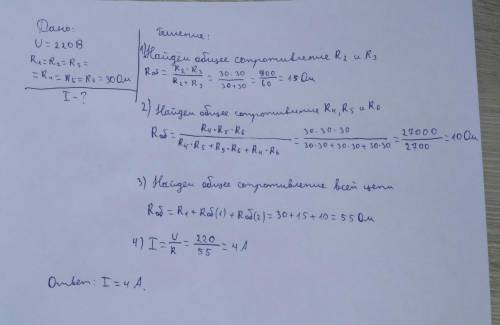 Дано:
U = 220 В
R₁ = R₂ = R₃ =
= R₄ = R₅ = R₆ = 30 Ом
I - ?
Решение:
1) Найдем общее сопротивление R₂ и R₃
Rоб = R₂ · R₃ / R₂ + R₃ = 30 · 30 / 30 + 30 = 900 / 60 = 15 Ом
2) Найдем общее сопротивление R₄, R₅ и R₆
Rоб = R₄ · R₅ · R₆ / R₄ · R₅ + R₅ · R₆ + R₄ · R₆ = 30 · 30 · 30 / 30·30 + 30·30 + 30·30 = 27000 / 2700 = 10 Ом
3) Найдем общее сопротивление всей цепи
Rоб = R₁ + Rоб(1) + Rоб(2) = 30 + 15 + 10 = 55 Ом
4) I = U / R = 220 / 55 = 4 А
Ответ: I = 4 А.